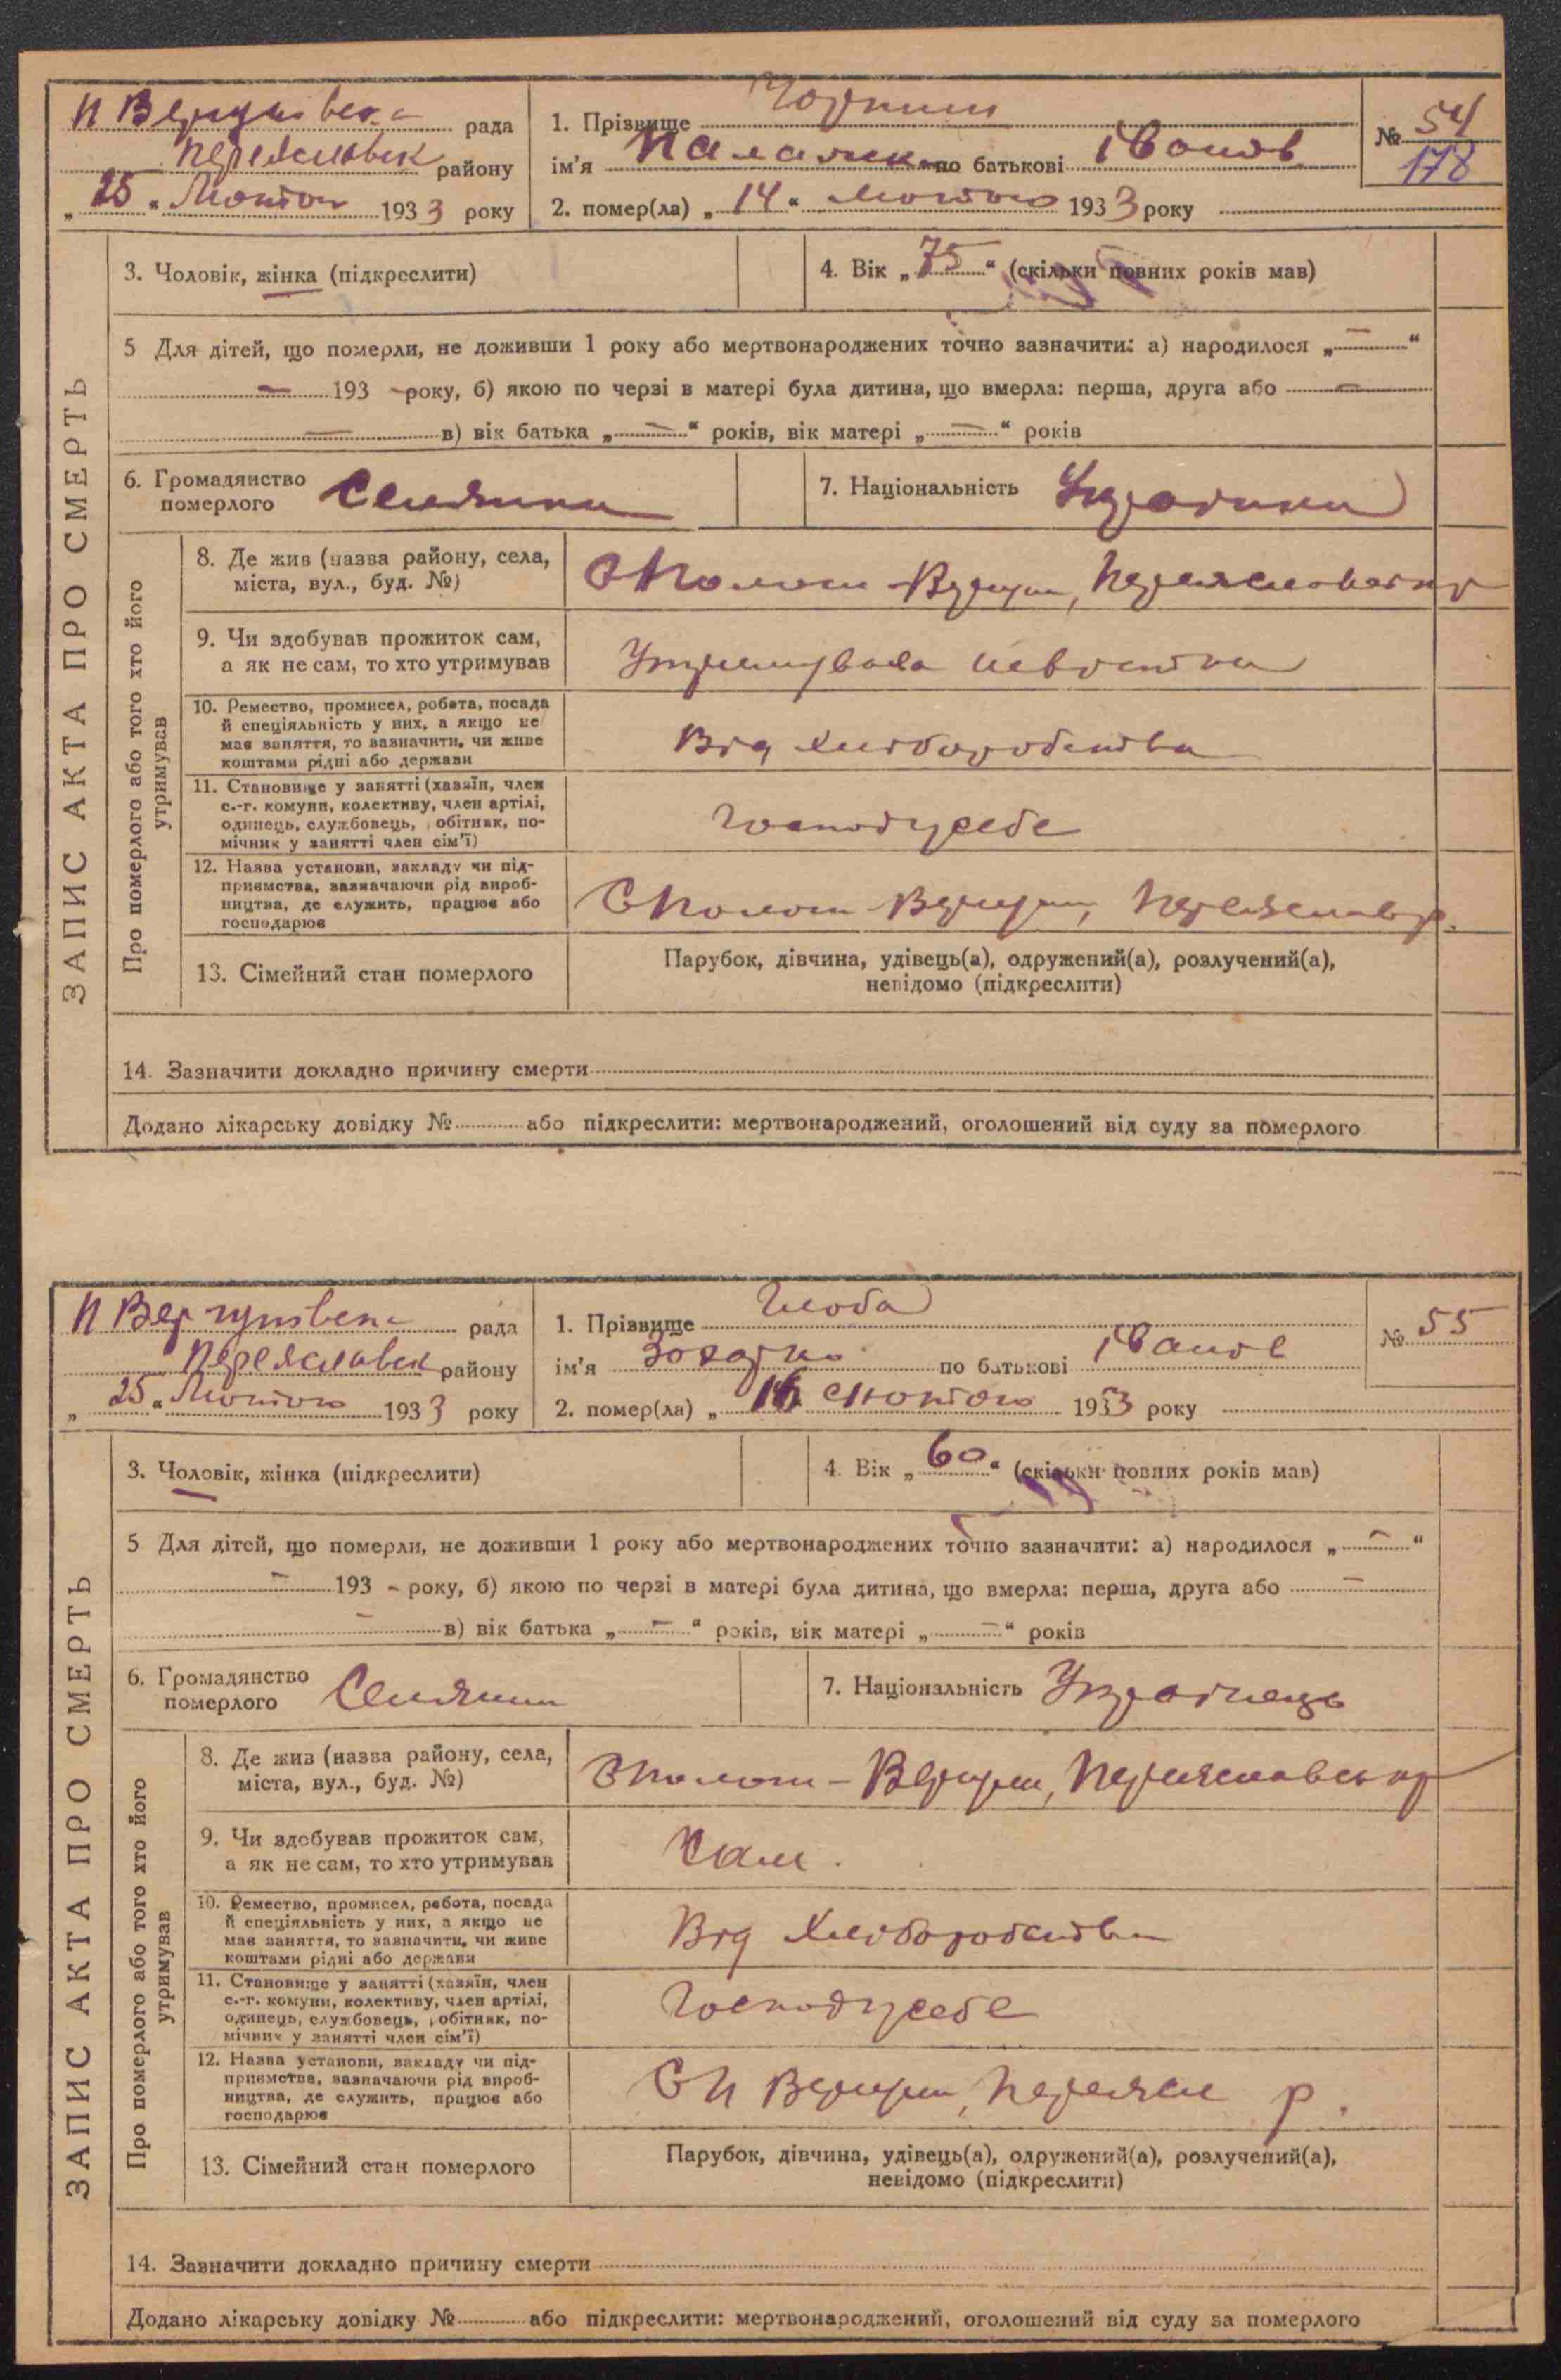 П Вергунівска рада
Переяславск району
„ 25 “ Лютого 1933 року
1. Прізвище
ім'я Палажка по батькові Іванов
2. помер(ла) „ 14 “ лютого 1933 року
№ 54
178
3. Чоловік, жінка (підкреслити)
4. Вік „ 75 “ (скільки повних років мав)
5 Для дітей, що померли, не доживши 1 року або мертвонароджених точно зазначити: а) народилося „ — “
— 193 — року, б) якою по черзі в матері була дитина, що вмерла: перша, друга або —
— в) вік батька „ — “ років, вік матері „ — “ років
6. Громадянство
померлого Селянка
7. Національність Українка
ЗАПИС АКТА ПРО СМЕРТЬ
Про померлого або того хто його
утримував
8. Де жив (назва району, села,
міста, вул., буд. №)
9. Чи здобував прожиток сам,
а як не сам, то хто утримував
Утримувала невістка
10. Ремество, промисел, робота, посада
й спеціяльність у них, а якщо не
має заняття, то зазначити, чи живе
коштами рідні або держави
Від хліборобства
11. Становище у занятті (хазяїн, член
с.-г. комуни, колективу, член артілі,
одинець, службовець, робітник, по-
мічник у занятті член сім'ї)
12. Назва установи, закладу чи під-
приємства, зазначаючи рід вироб-
ництва, де служить, працює або
господарює
13. Сімейний стан померлого
Парубок, дівчина, удівець(а), одружений(а), розлучений(а),
невідомо (підкреслити)
14. Зазначити докладно причину смерти
Додано лікарську довідку № або підкреслити: мертвонароджений, оголошений від суду за померлого
П Вергунівска рада
Переяславск району
„ 25 “ Лютого 1933 року
1. Прізвище Глоба
ім'я Захарко по батькові Іванов
2. помер(ла) „ 16 лютого 1933 року
№ 55
3. Чоловік, жінка (підкреслити)
4. Вік „ 60 “ (скільки повних років мав)
5 Для дітей, що померли, не доживши 1 року або мертвонароджених точно зазначити: а) народилося „ — “
— 193 — року, б) якою по черзі в матері була дитина, що вмерла: перша, друга або —
— в) вік батька „ — “ років, вік матері „ — “ років
6. Громадянство
померлого Селянин
7. Національність Українець
ЗАПИС АКТА ПРО СМЕРТЬ
Про померлого або того хто його
утримував
8. Де жив (назва району, села,
міста, вул., буд. №)
9. Чи здобував прожиток сам,
а як не сам, то хто утримував
Сам.
10. Ремество, промисел, робота, посада
й спеціяльність у них, а якщо не
має заняття, то зазначити, чи живе
коштами рідні або держави
Від Хліборобства
11. Становище у занятті (хазяїн, член
с.-г. комуни, колективу, член артілі,
одинець, службовець, робітник, по-
мічник у занятті член сім'ї)
12. Назва установи, закладу чи під-
приємства, зазначаючи рід вироб-
ництва, де служить, працює або
господарює
13. Сімейний стан померлого
Парубок, дівчина, удівець(а), одружений(а), розлучений(а),
невідомо (підкреслити)
14. Зазначити докладно причину смерти
Додано лікарську довідку № або підкреслити: мертвонароджений, оголошений від суду за померлого